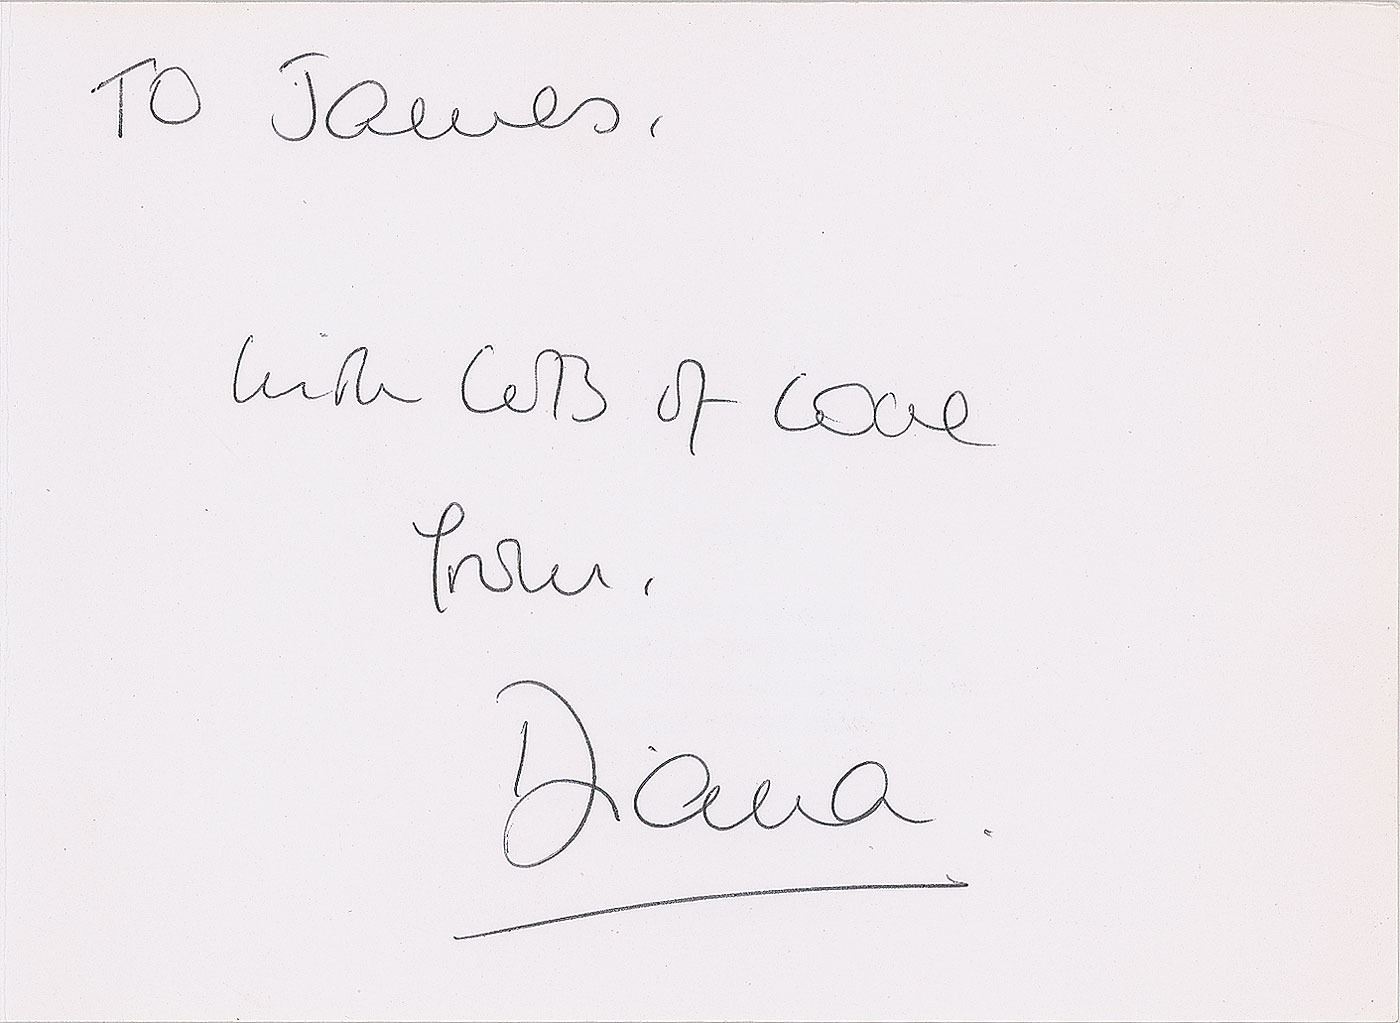 TO James,
with lots of love
from,
Diana.